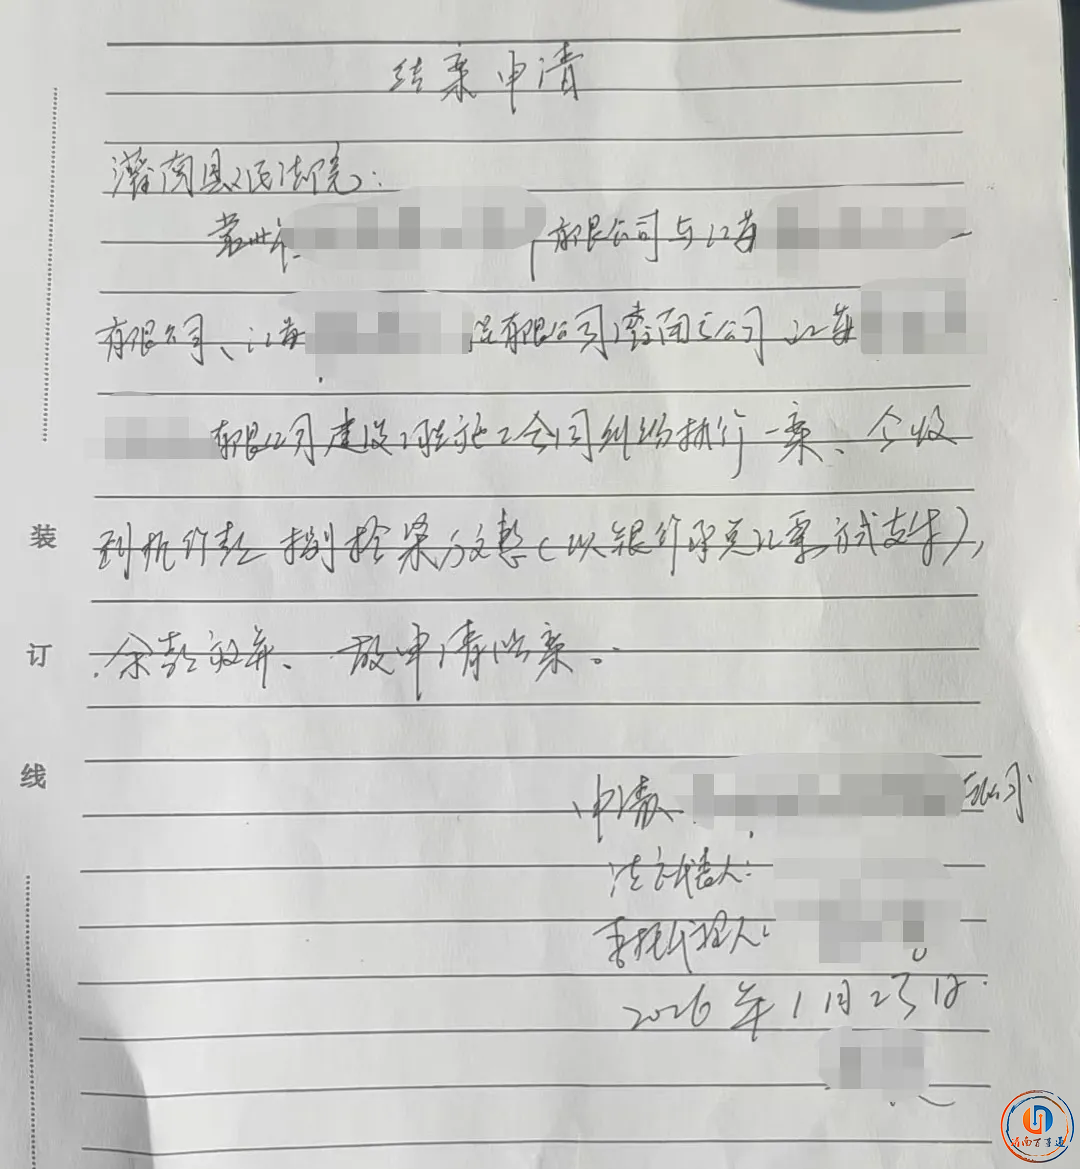 结案申请
灌南县人民法院:
常州市 有限公司与江苏
有限公司、江苏 有限公司灌南分公司 江苏
有限公司建设工程施工合同纠纷执行一案、今收
到执行款 捌拾柒万 整(以银行承兑汇票方式支付),
余款放弃、故申请结案。
申请人 公司
法定代表人:
委托代理人:
2026年1月23日
装
订
线
灌南百事通